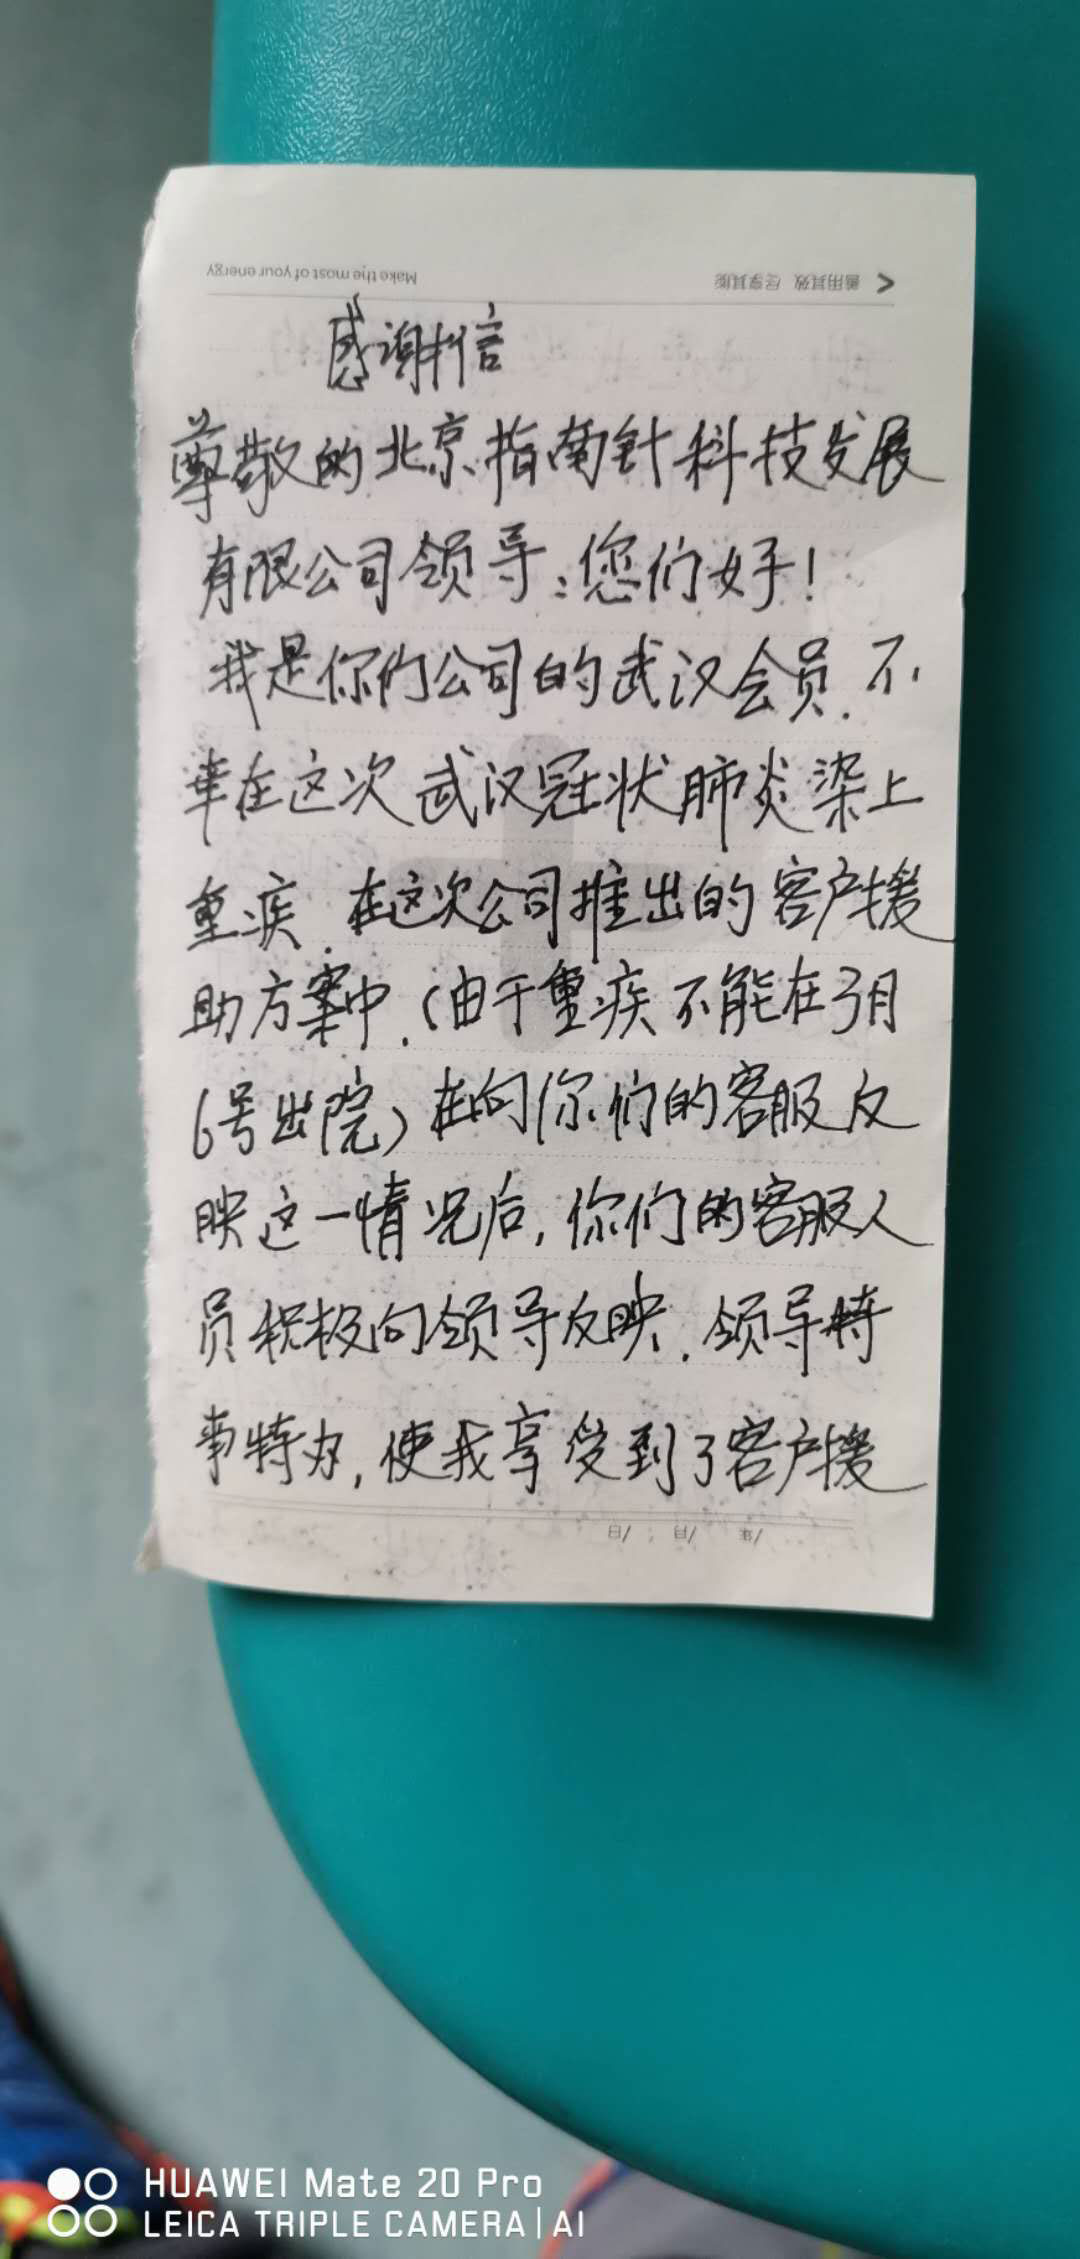 Make the most of your energy 善用其效 尽享其能
感谢信
尊敬的北京指南针科技发展
有限公司领导:您们好!
我是你们公司的武汉会员.不
幸在这次武汉冠状肺炎染上
重疾.在这次公司推出的客户援
助方案中.(由于重疾不能在3月
6号出院)在向你们的客服反
映这一情况后,你们的客服人
员积极向领导反映.领导特
事特办,使我享受到了客户援
/年 /月 /日
HUAWEI Mate 20 Pro
LEICA TRIPLE CAMERA | AI